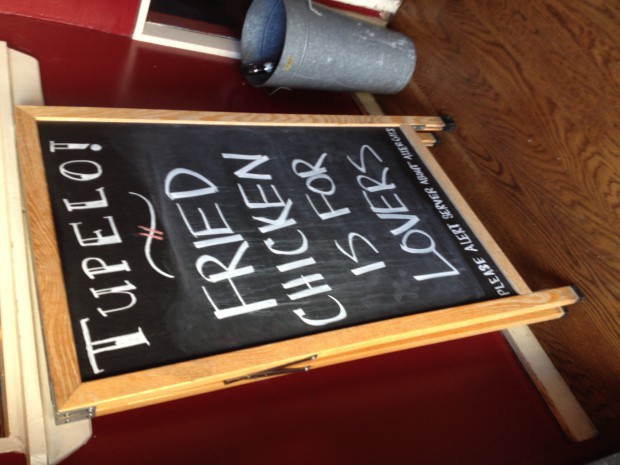 TUPELO!
FRIED
CHICKEN
IS FOR
LOVERS
PLEASE ALERT SERVER ABOUT ALLERGIES